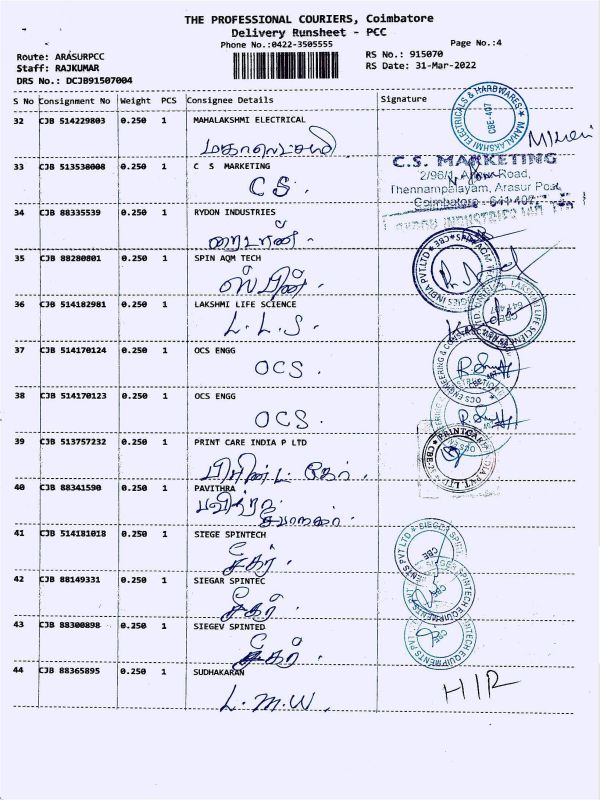 THE PROFESSIONAL COURIERS, Coimbatore
Delivery Runsheet - PCC
Phone No.:0422-3505555
Page No.:4
Route: ARASURPCC
RS No.: 915070
Staff: RAJKUMAR
RS Date: 31-Mar-2022
DRS No.: DCJB91507004
S No Consignment No Weight PCS Consignee Details Signature
32 CJB 514229803 0.250 1 MAHALAKSHMI ELECTRICAL
MAHALAKSHMI ELECTRICALS & HARDWARES
CBE-407
மகாலட்சுமி
33 CJB 513538008 0.250 1 C S MARKETING
C.S. MARKETING
2/96/1, Arasur Road,
Thennampalayam, Arasur Post,
Coimbatore - 641 407
C S .
34 CJB 88335539 0.250 1 RYDON INDUSTRIES
35 CJB 88280801 0.250 1 SPIN AQM TECH
ஸ்பின் .
36 CJB 514182981 0.250 1 LAKSHMI LIFE SCIENCE
L. L. S .
37 CJB 514170124 0.250 1 OCS ENGG
OCS .
38 CJB 514170123 0.250 1 OCS ENGG
OCS .
39 CJB 513757232 0.250 1 PRINT CARE INDIA P LTD
பிரிண்ட் கேர் .
40 CJB 88341590 0.250 1 PAVITHRA
பவித்ரா
41 CJB 514181018 0.250 1 SIEGE SPINTECH
42 CJB 88149331 0.250 1 SIEGAR SPINTEC
43 CJB 88300898 0.250 1 SIEGEV SPINTED
44 CJB 88365895 0.250 1 SUDHAKARAN
L. M. W .
H I R